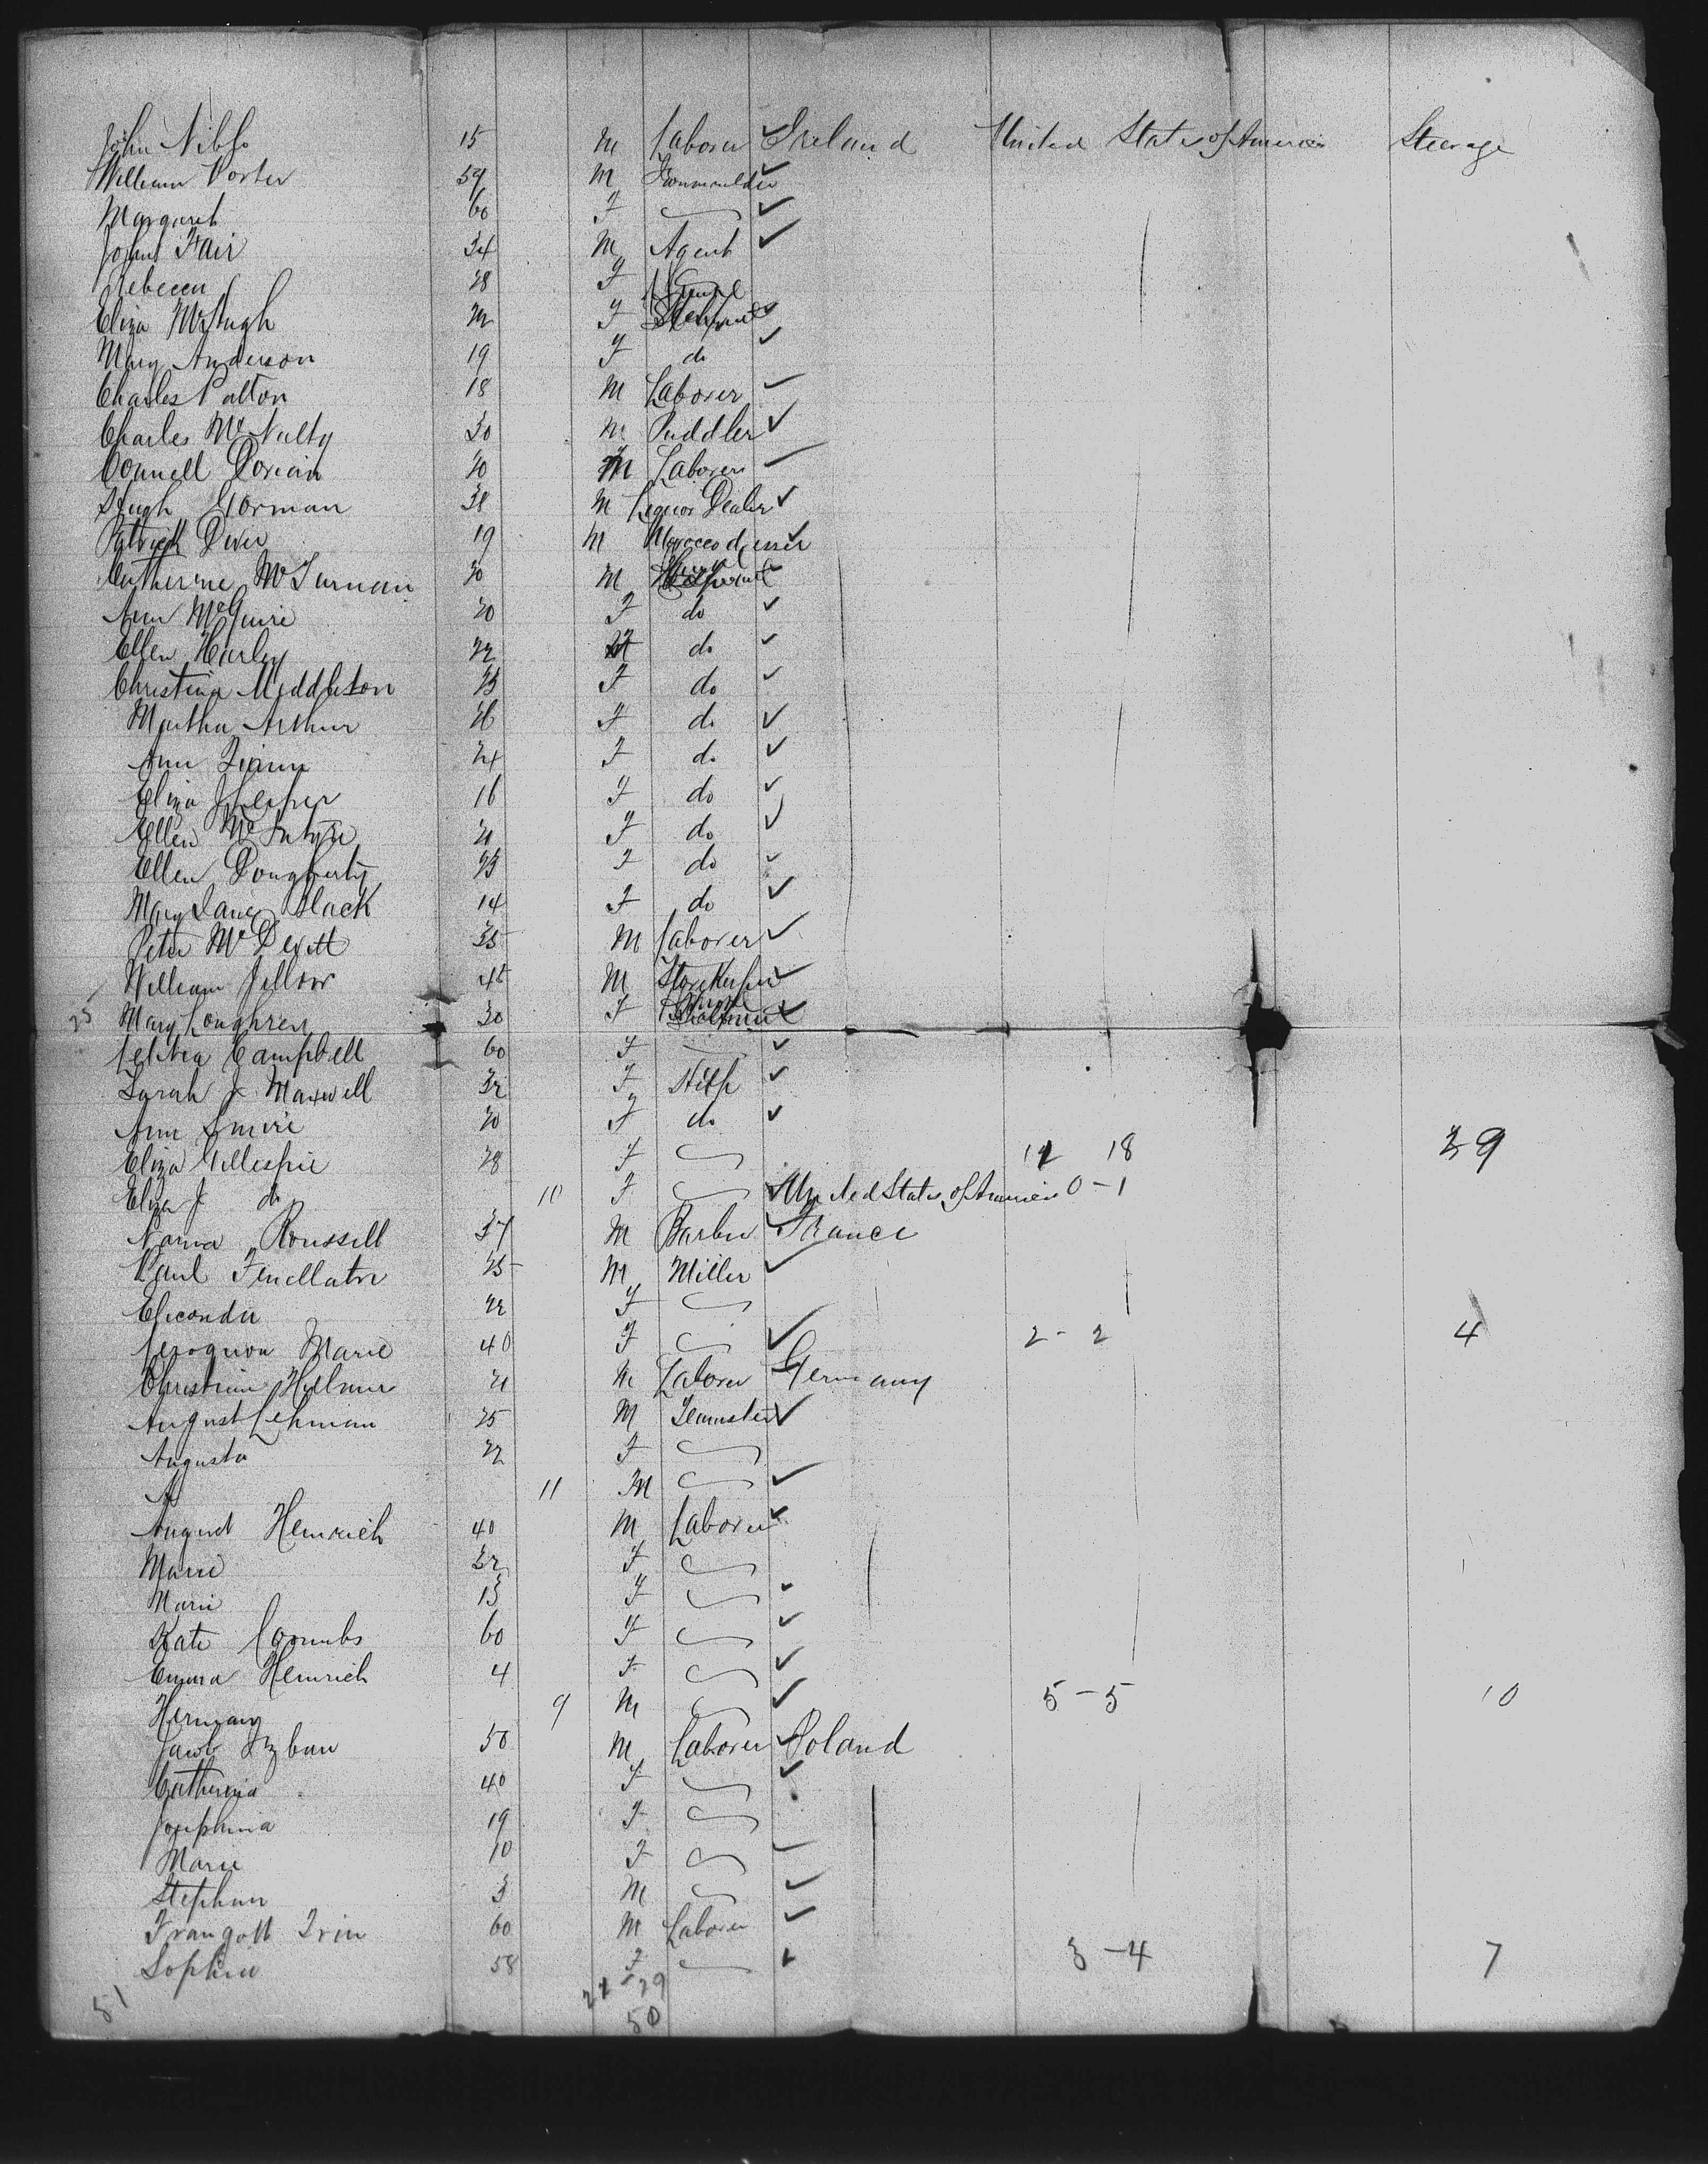 John Nibfo 15 M Laborer Ireland United States of America Steerage
William Porter 59 M Ironmoulder
Margaret 60 F
John Fair 34 M Agent
Rebecca 28 F
Eliza McHugh 22 F
Mary Anderson 19 F do
Charles Patton 18 M Laborer
Charles McNulty 30 M Puddler
Connell Dorian 20 M Laborer
Hugh Gorman 38 M Liquor Dealer
Patrick Diver 19 M Morocco dresser
Catherine McTurnan 20 M
Ann McGuire 20 F do
Ellen Hurley 22 F do
Christina Middleton 25 F do
Martha Arthur 26 F do
Ann 24 F do
Eliza 16 F do
Ellen McIntyre 21 F do
Ellen Dougherty 25 F do
Mary Jane Black 14 F do
Peter McDevitt 35 M Laborer
William 45 M Storekeeper
25 Mary Loughren 30 F
Letitia Campbell 60 F
Sarah J Maxwell 32 F Help
Ann 20 F do
Eliza Gillespie 28 F 12 18 39
Eliza J do 10 F United States of America 0 - 1
Roussell 37 M Barber France
Paul 25 M Miller
22 F
Marie 40 F 2 - 2 4
Christian 21 M Laborer Germany
August Lehman 25 M Teamster
Augusta 22 F
A 11 M
August Heinrich 40 M Laborer
Marie 32 F
Marie 13 F
Kate Coombs 60 F
Emma Heinrich 4 F
Hermany 9 M 5 - 5 10
Jacob 50 M Laborer Poland
Catherina 40 F
Josephina 19 F
Marie 10 F
Stephan 3 M
60 M Laborer
Sophie 58 F 3 - 4 7
51 22 - 29
50